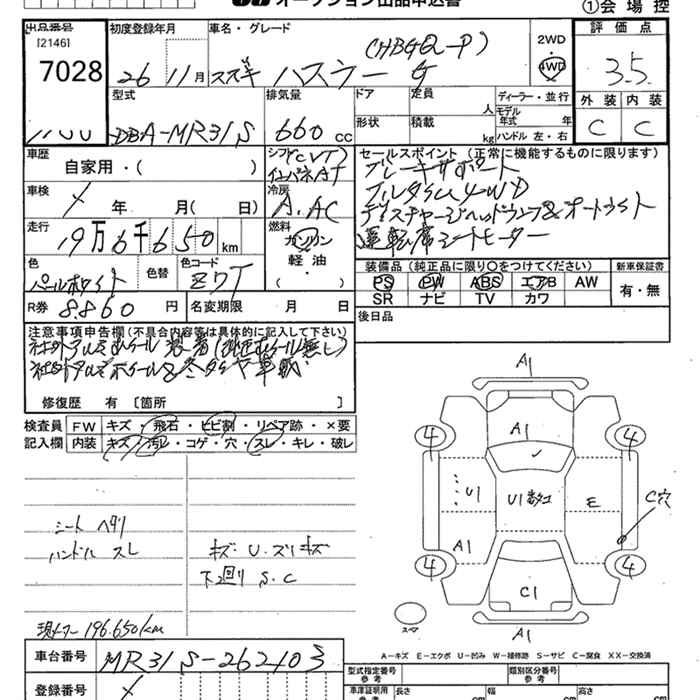 オークション出品申込書
①会場控
出品番号 初度登録年月 車名・グレード 評価点
[2146]
7028
26 11月 スズキ ハスラー G
2WD
4WD
3.5
外装 内装
C C
型式 排気量 ドア 定員 ディーラー・並行
人 モデル年式 年
DBA-MR31S 660 cc
形状 積載 kg ハンドル 左・右
車歴 自家用・( )
シフト(CVT)
インパネAT
冷房
A.AC
車検 × 年 月( 日)
走行 19万6千650km
燃料 ガソリン
軽油
・
色 色替 色コード
パールホワイト Z7T
R券 8.860円 名変期限 月 日
セールスポイント(正常に機能するものに限ります)
ブレーキサポート
フルタイム4WD
ディスチャージヘッドランプ&オートライト
運転席シートヒーター
装備品(純正品に限り〇をつけてください) 新車保証書
PS PW ABS エアB AW
SR ナビ TV カワ
有・無
後日品
注意事項申告欄(不具合内容等は具体的に記入して下さい)
社外アルミホイール装着
修復歴 有 [箇所 ]
検査員記入欄 FW キズ・飛石・ヒビ割・リペア跡・×要
内装 キズ・汚レ・コゲ・穴・スレ・キレ・破レ
シート ヘタリ
ハンドル スレ
キズ. U. ズリキズ
下廻り S.C
現メーター 196.650km
A1
A1
4 4
U1 U1数コ E C穴
A1
4 4
C1
A1
スペア
A-キズ E-エクボ U-凹み W-補修跡 S-サビ C-腐食 XX-交換済
車台番号 MR31S-262103
登録番号
型式指定番号 参考 類別区分番号 参考
車庫証明用 参考 長さ cm 幅 cm 高さ cm